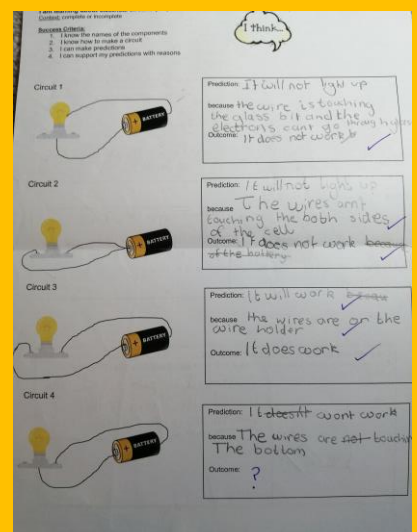 Context: complete or incomplete
Success Criteria:
1. I know the names of the components
2. I know how to make a circuit
3. I can make predictions
4. I can support my predictions with reasons
I think...
Circuit 1
BATTERY
Prediction: It will not light up
because the wire is touching
the glass bit and the
electrons cant go
Outcome: It does not work
Circuit 2
BATTERY
Prediction: It will not light up
because The wires arnt
touching the both sides
of the cell
Outcome: It does not work
of the battery
Circuit 3
BATTERY
Prediction: It will work
because the wires are on the
wire holder
Outcome: It does work
Circuit 4
BATTERY
Prediction: It doesn't wont work
because The wires are not touchin
The bottom
Outcome:
?